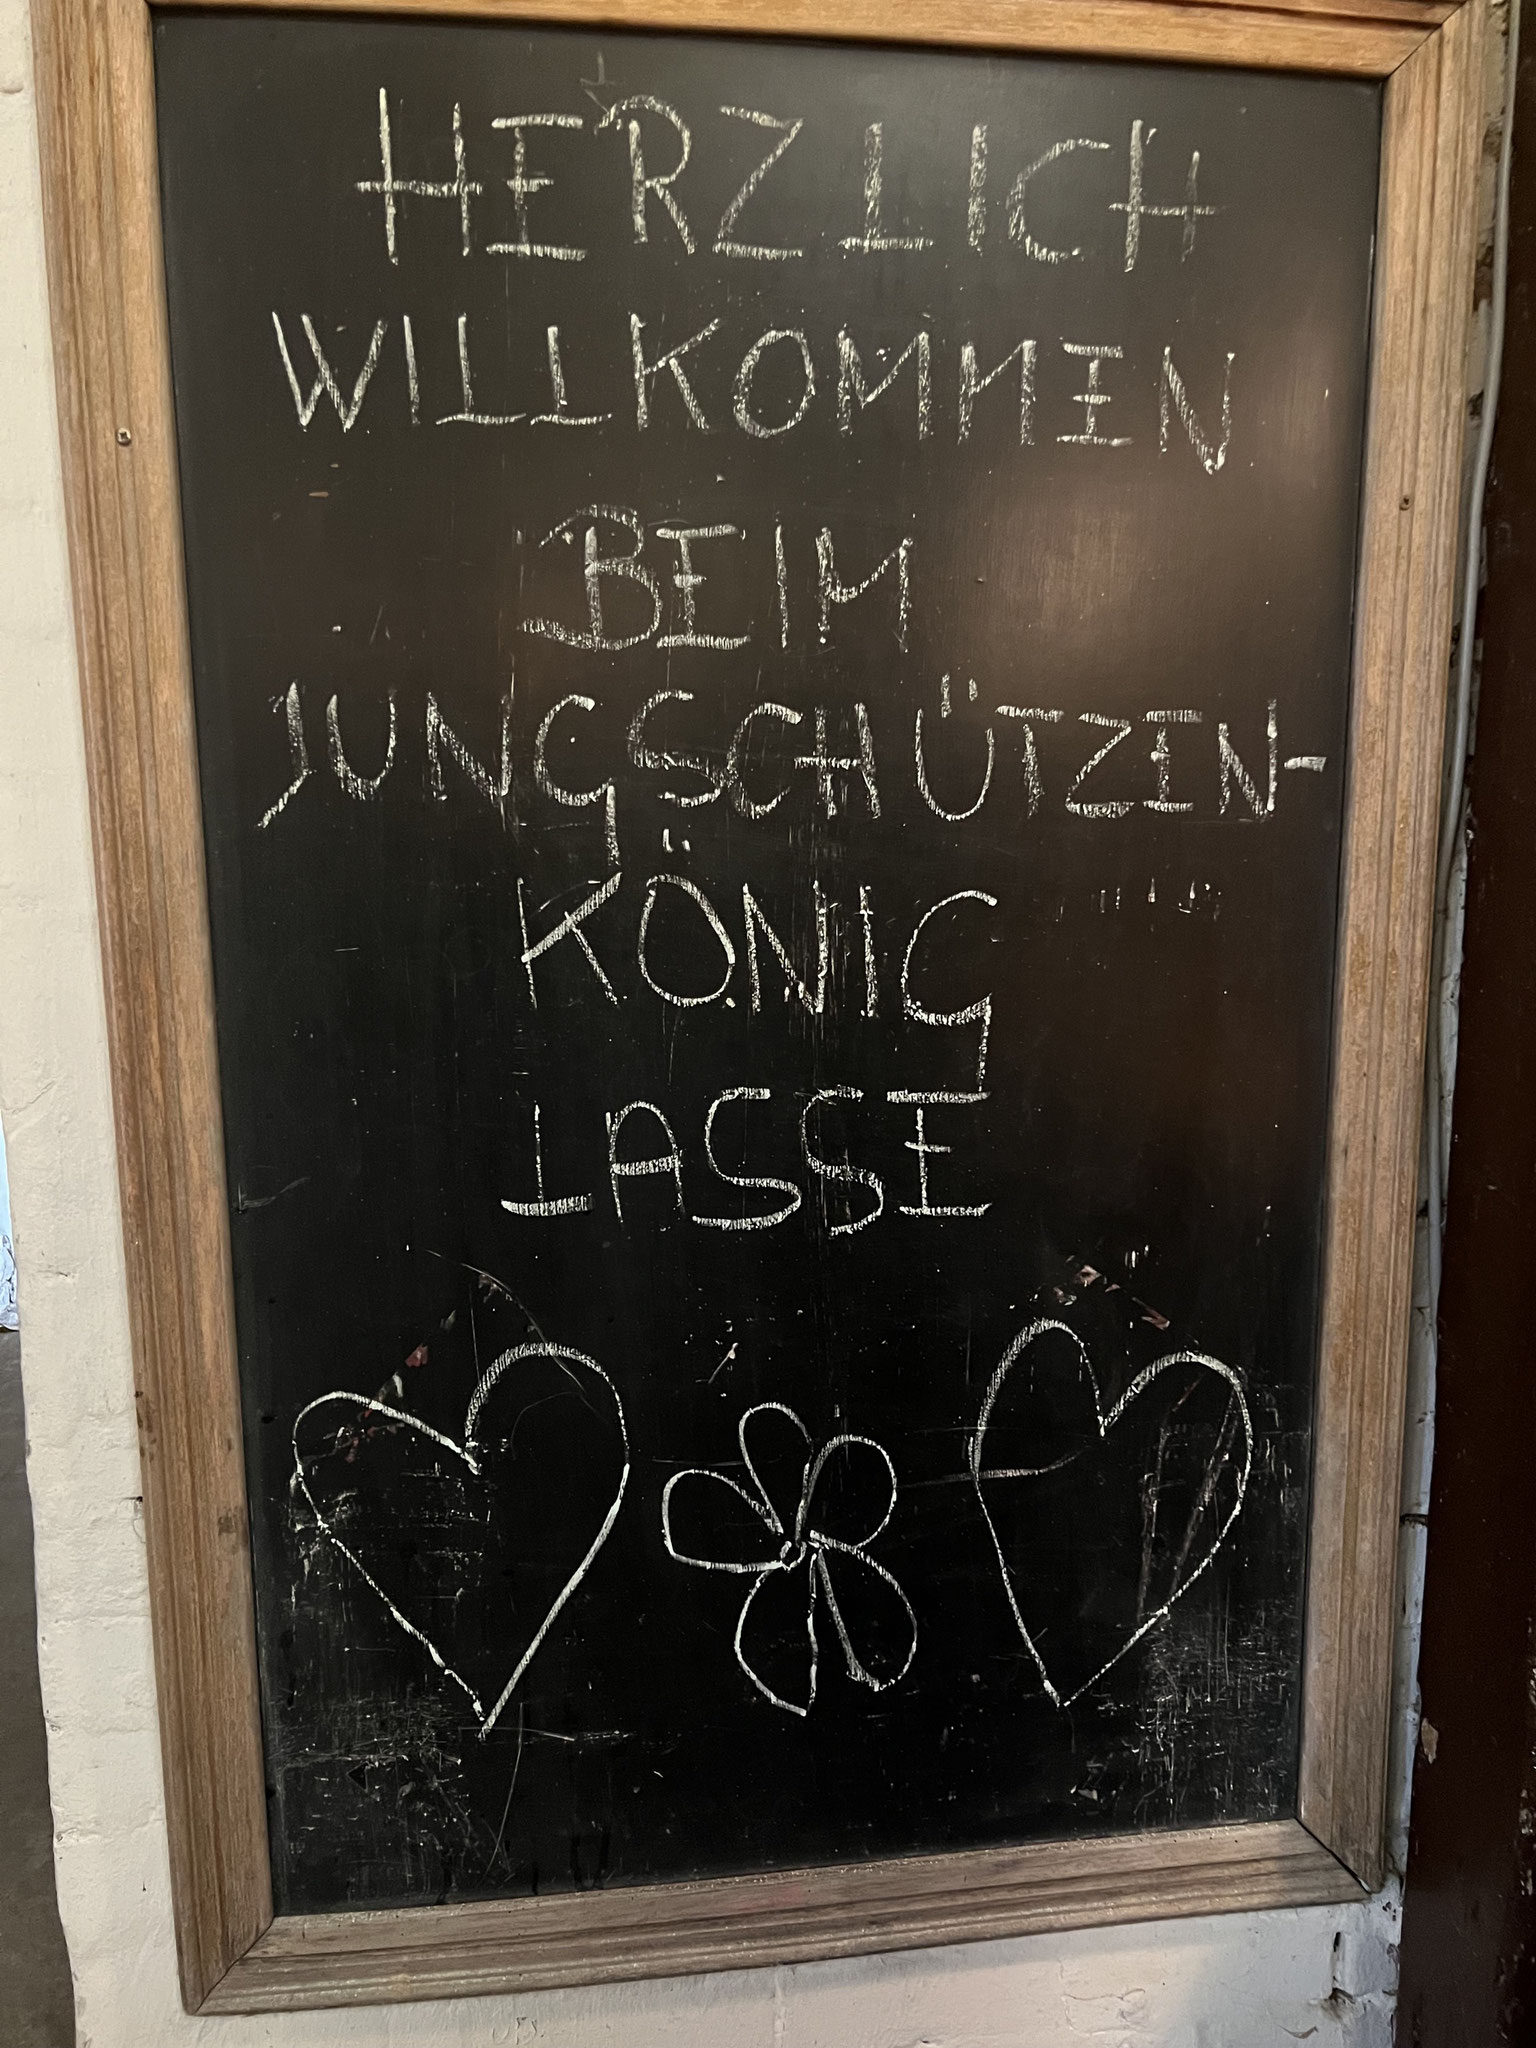 HERZLICH
WILLKOMMEN
BEIM
JUNGSCHÜTZEN-
KÖNIG
LASSE